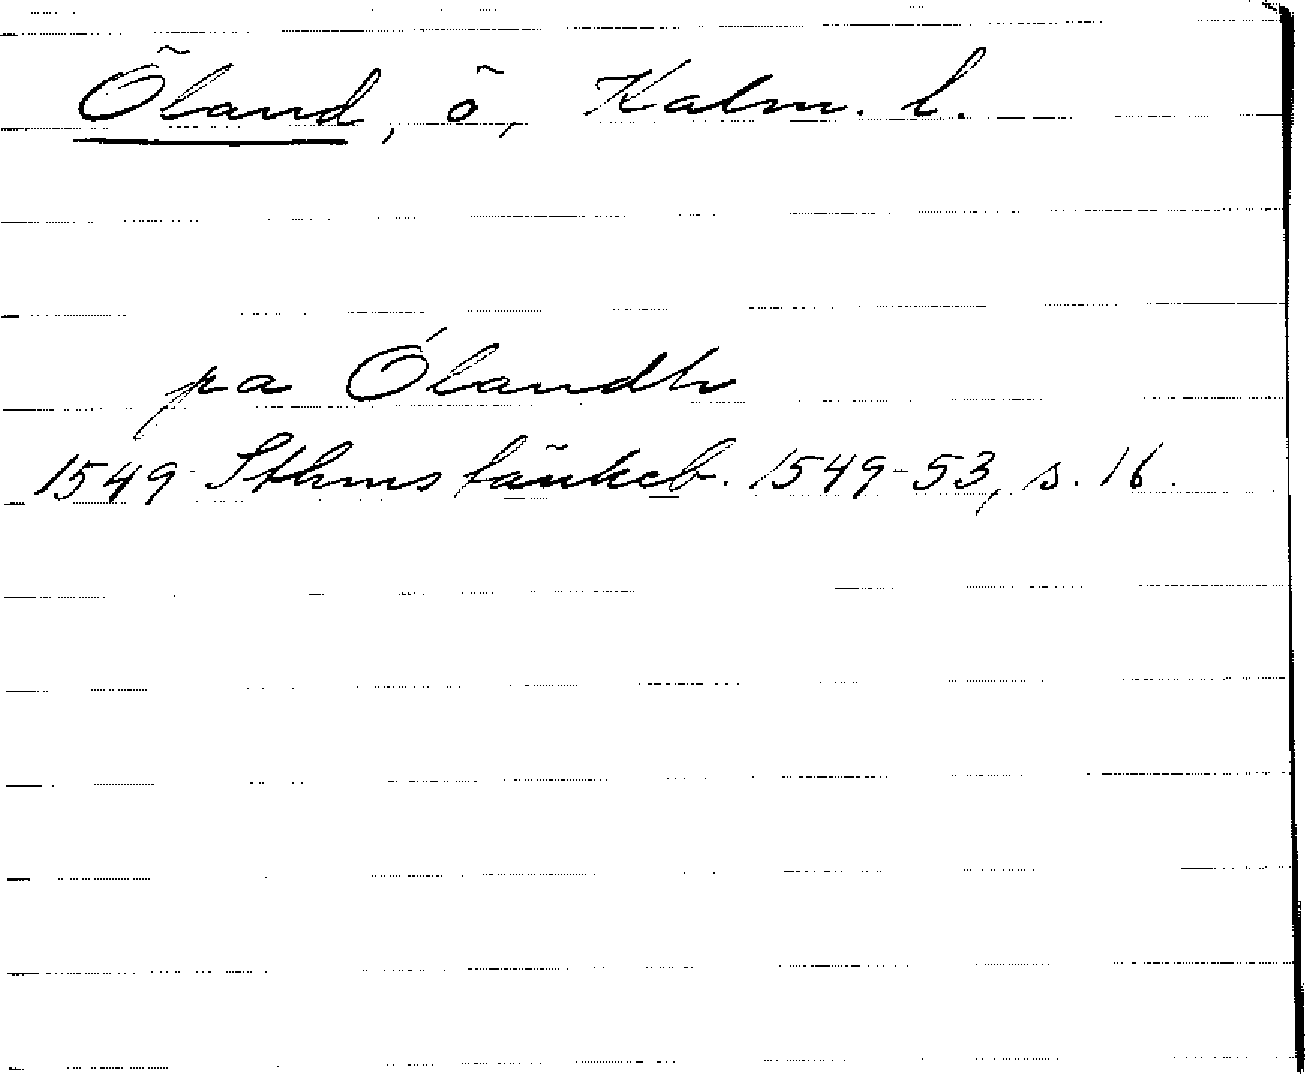 Öland, ö, Kalm. l.
pa Ólandh
1549 Sthms tänkeb. 1549-53, s. 16.